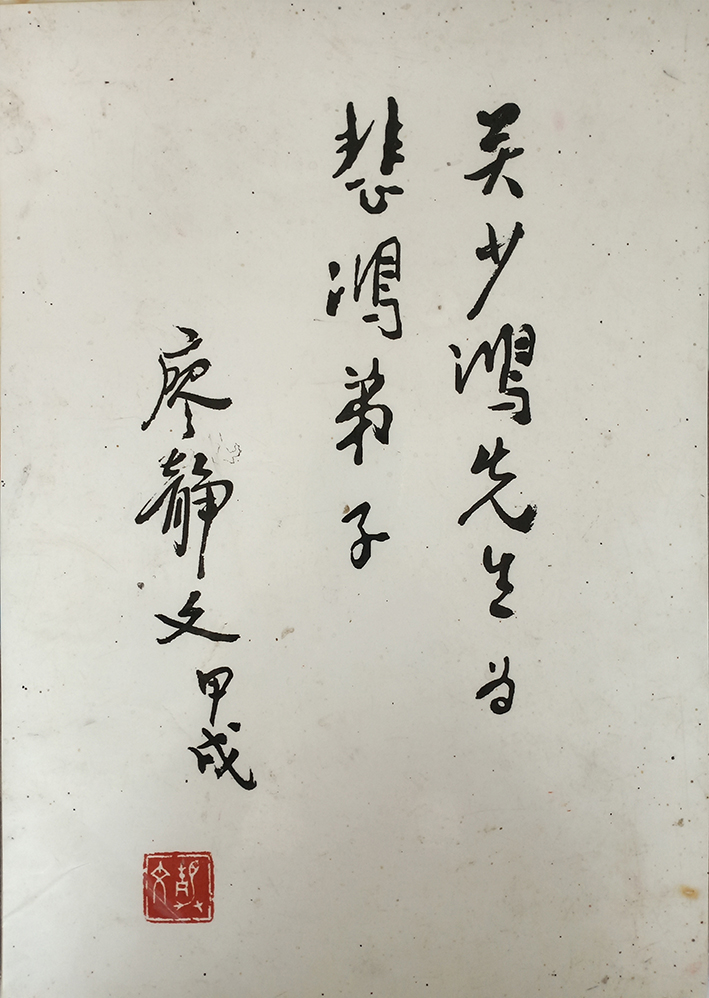 吴少鸿先生为
悲鸿弟子
廖静文 甲戌
静文